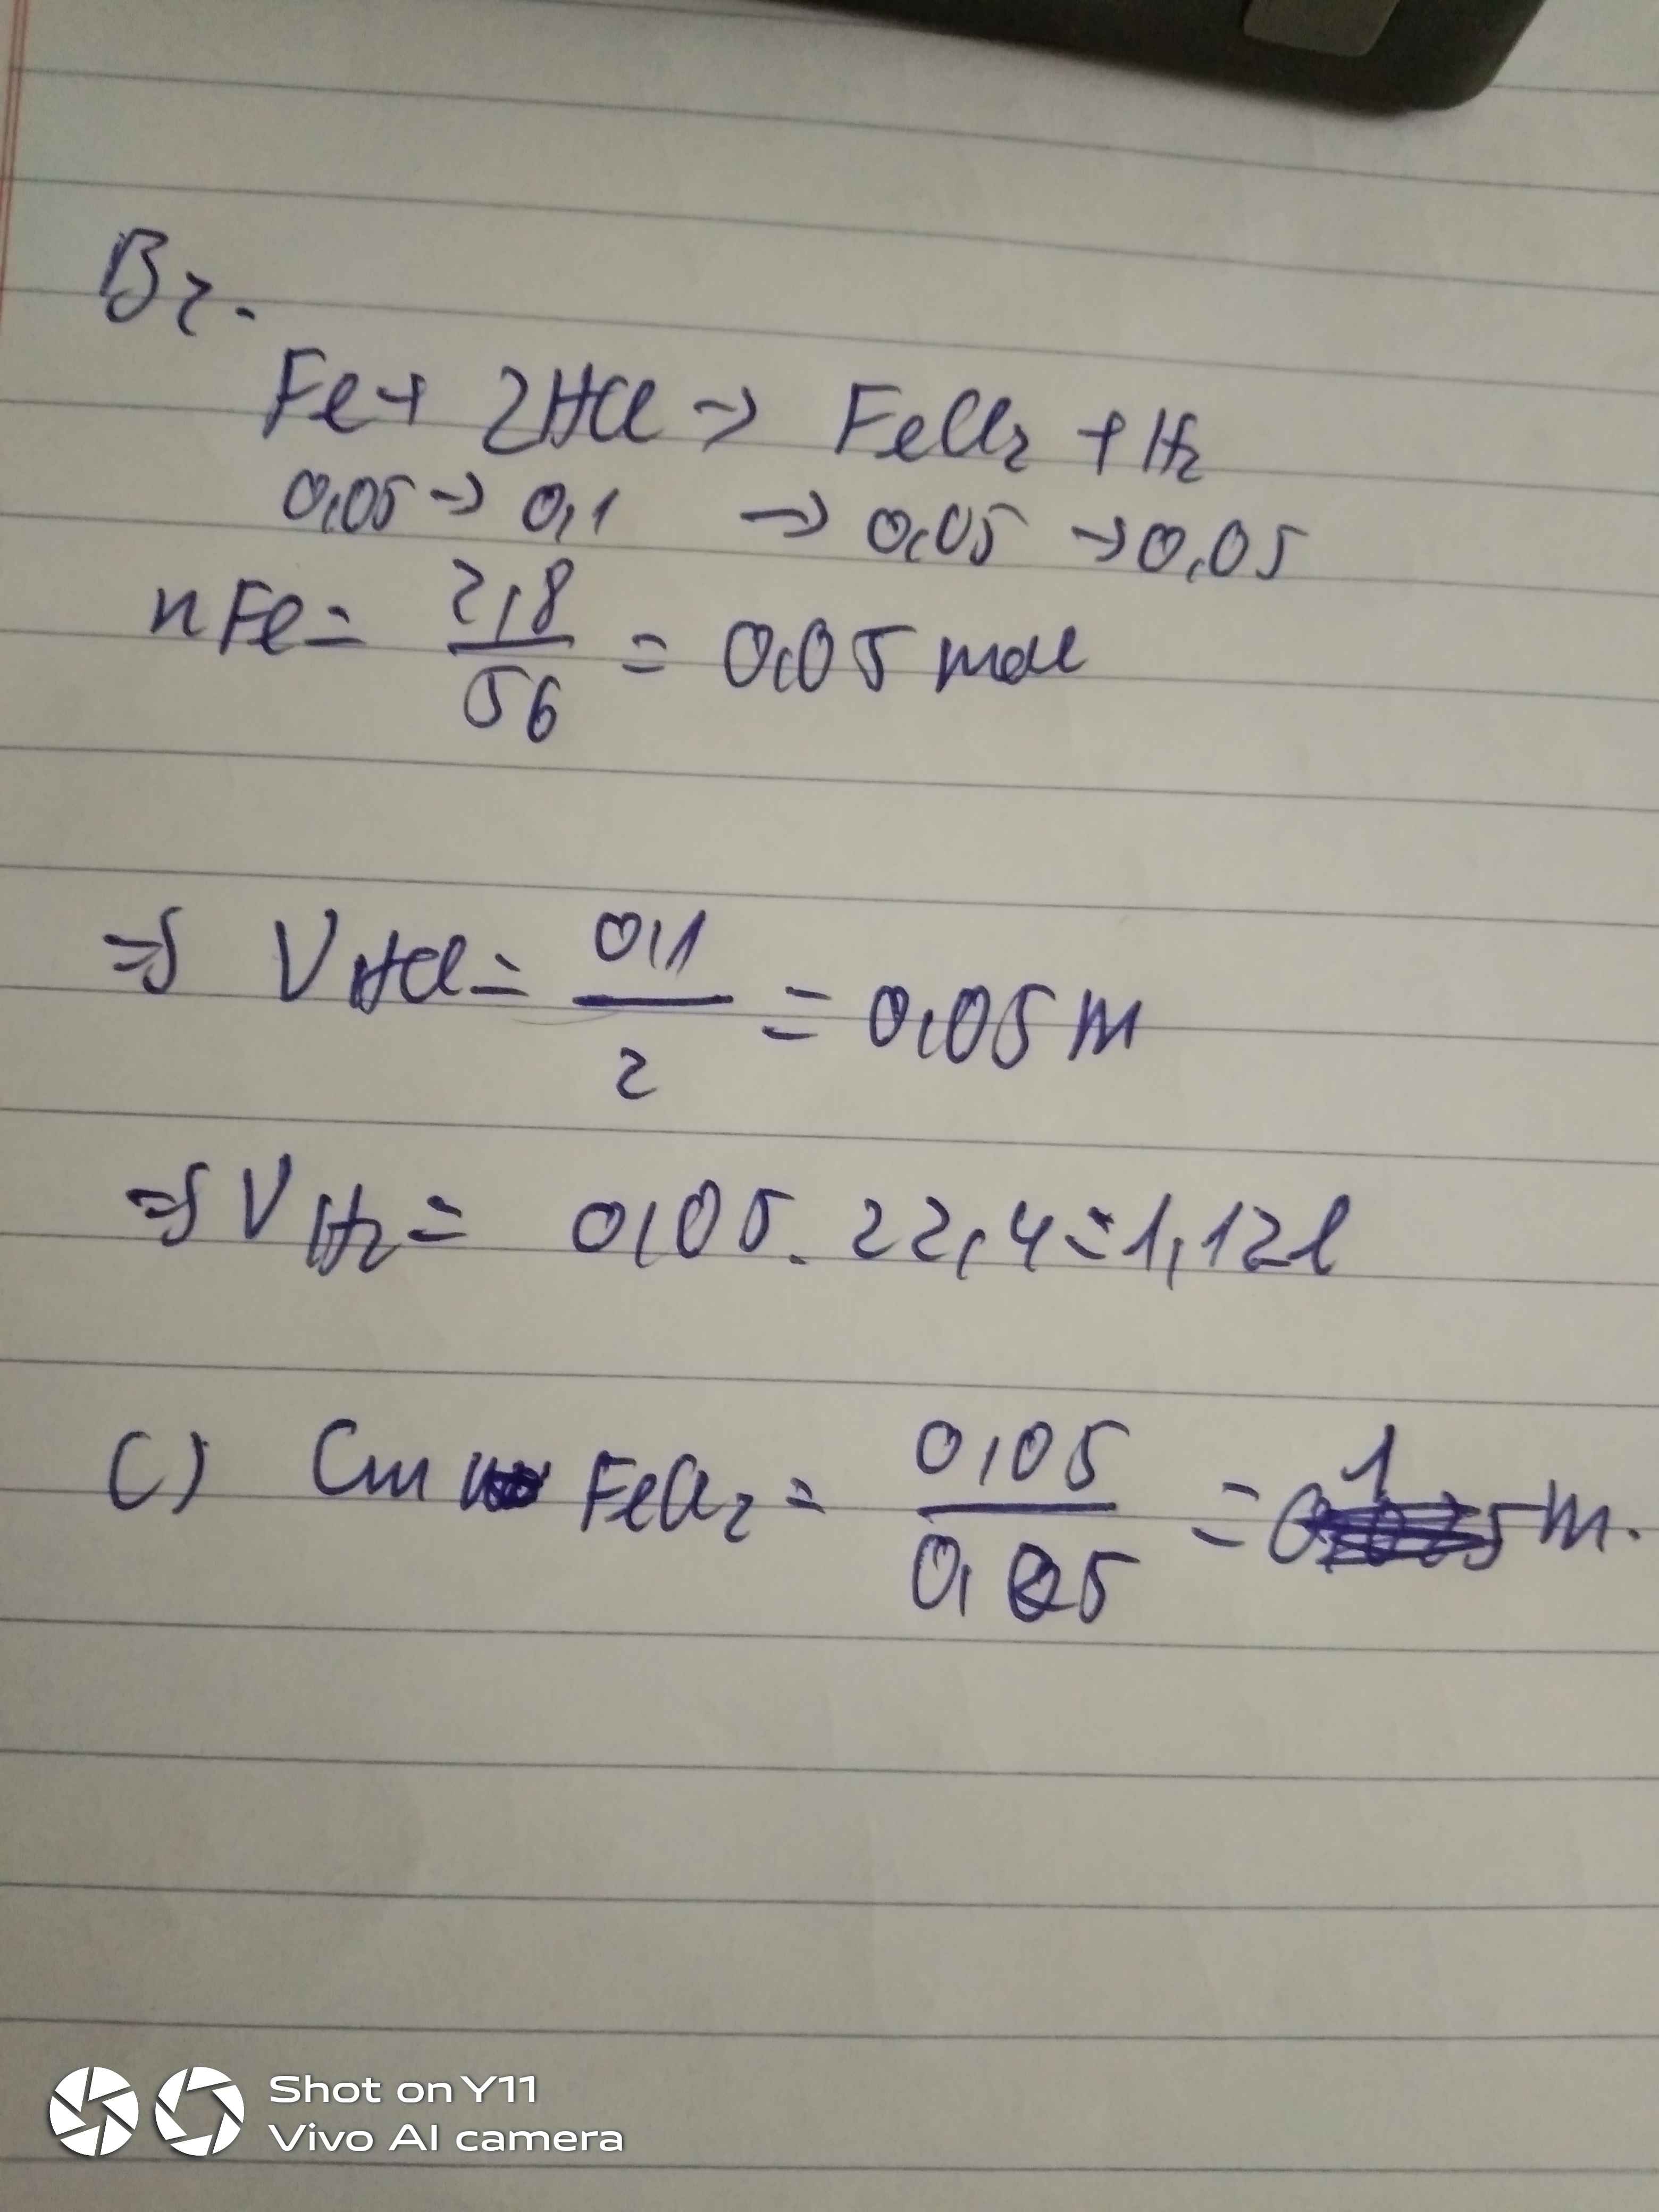 B2.
Fe + 2HCl → FeCl₂ + H₂
0,05 → 0,1 → 0,05 → 0,05
nFe = 2,8 / 56 = 0,05 mol
⇒ V HCl = 0,1 / 2 = 0,05 m
⇒ V H₂ = 0,05 . 22,4 = 1,12 l
C) Cm FeCl₂ = 0,05 / 0,05 = 1 m.
Shot on Y11
Vivo AI camera